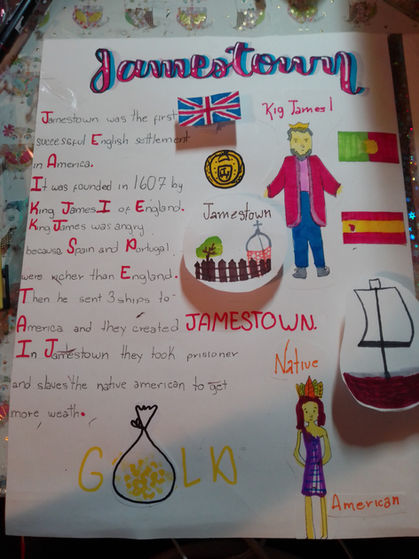 Jamestown
Jamestown was the first
successful English settlement
in America.
It was founded in 1607 by
King James I of England.
King James was angry
because Spain and Portugal
were richer than England.
Then he sent 3 ships to
America and they created JAMESTOWN.
In Jamestown they took prisioner
and slaves the native american to get
more weath.
Kig James I
Jamestown
Native
American
GOLD